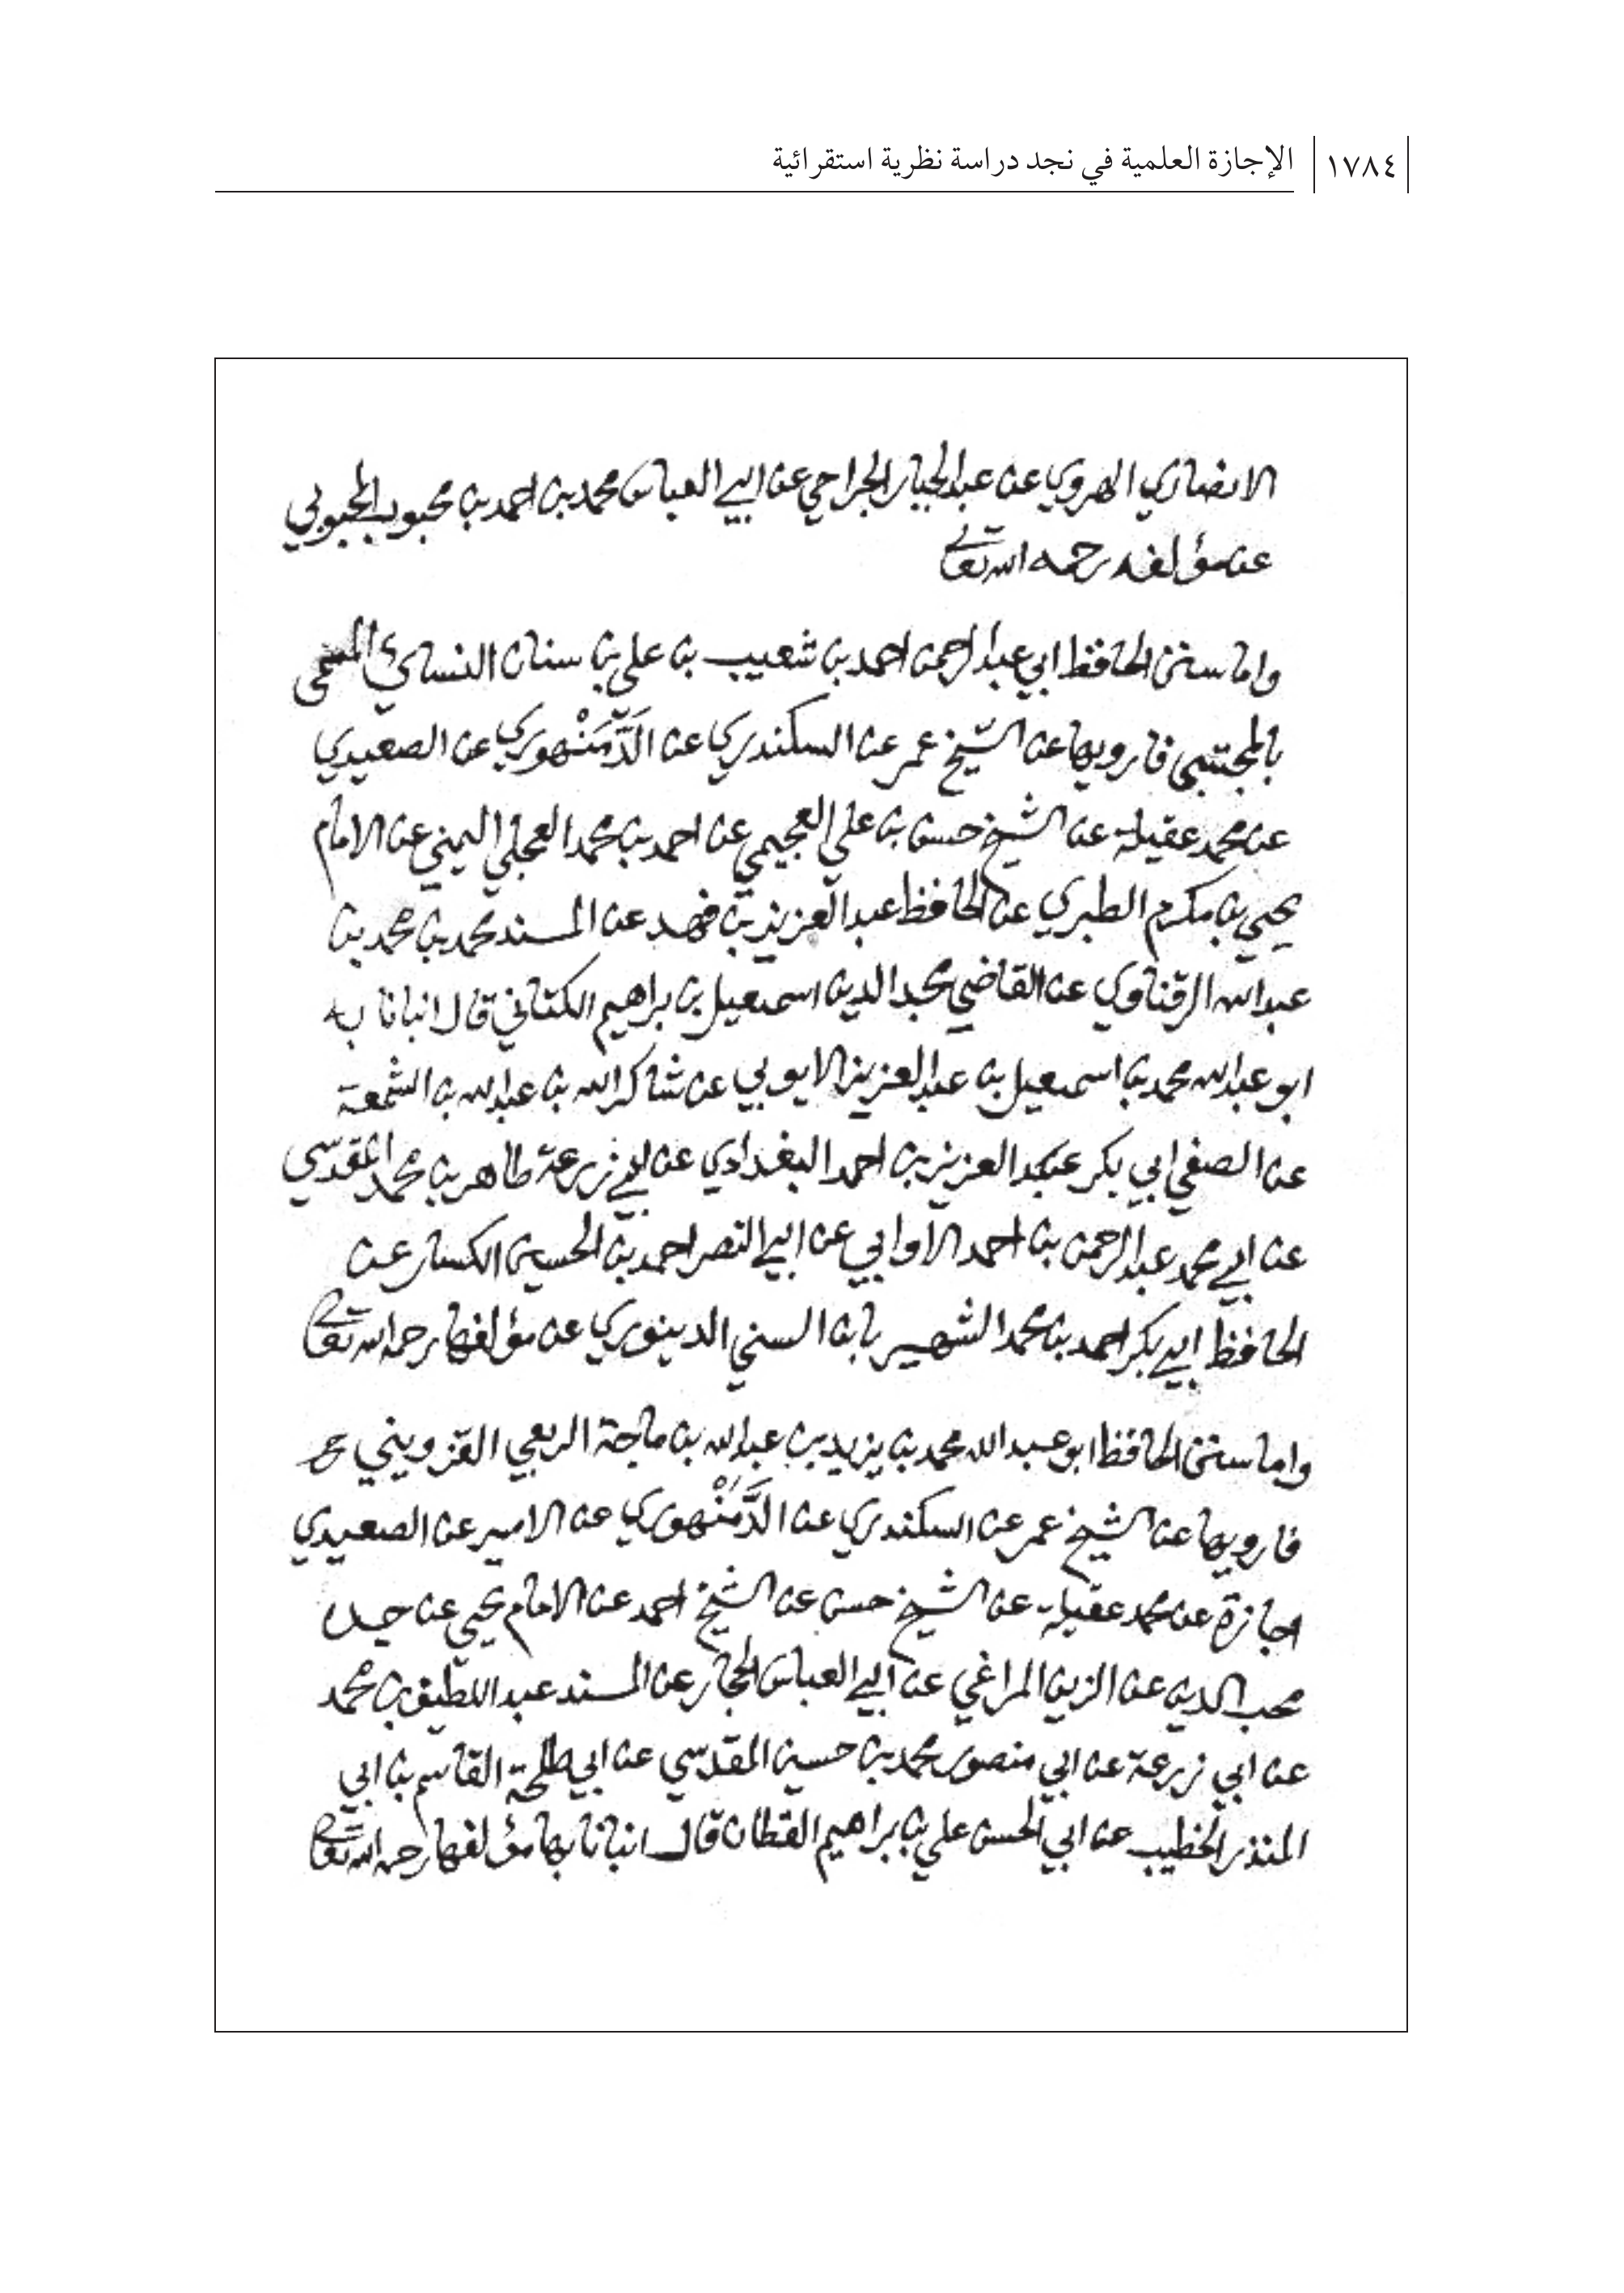 ١٧٨٤ الإجازة العلمية في نجد دراسة نظرية استقرائية
الانصاري الهروي عن عبدالجبار الجراحي عن ابي العباس محمد بن احمد بن محبوب المحبوبي
عن مؤلفه رحمه الله تعالى
واما سنن الحافظ ابي عبدالرحمن احمد بن شعيب بن علي بن سنان النسائي المسمى
بالمجتبى فارويها عن الشيخ عمر عن السكندري عن الدَّمَنْهوري عن الصعيدي
عن محمد عقيلة عن الشيخ حسن بن علي العجيمي عن احمد بن محمد العجلي اليمني عن الامام
يحيى بن مكرم الطبري عن الحافظ عبد العزيز بن فهد عن المسند محمد بن محمد بن
عبدالله الزفتاوي عن القاضي مجد الدين اسمعيل بن براهيم الكناني قال انبانا به
ابو عبدالله محمد بن اسمعيل بن عبدالعزيز الايوبي عن شاكر الله بن عبدالله بن الشمعة
عن الصفي ابي بكر عبد العزيز بن احمد البغدادي عن ابي زرعة طاهر بن محمد المقدسي
عن ابي محمد عبدالرحمن بن احمد الاوابي عن ابي النصر احمد بن الحسين الكسار عن
الحافظ ابي بكر احمد بن محمد الشهير بابن السني الدينوري عن مؤلفها رحمه الله تعالى
واما سنن الحافظ ابو عبد الله محمد بن يزيد بن عبدالله بن ماجة الربعي القزويني
فارويها عن الشيخ عمر عن السكندري عن الدَّمَنْهوري عن الامير عن الصعيدي
اجازة عن محمد عقيلة عن الشيخ حسن عن الشيخ احمد عن الامام يحيى عن جده
محب الدين عن الزين المراغي عن ابي العباس الحجار عن المسند عبد اللطيف بن محمد
عن ابي زرعة عن ابي منصور محمد بن حسين المقدسي عن ابي طلحة القاسم بن ابي
المنذر الخطيب عن ابي الحسن علي بن براهيم القطان قال انبانا بها مؤلفها رحمه الله تعالى